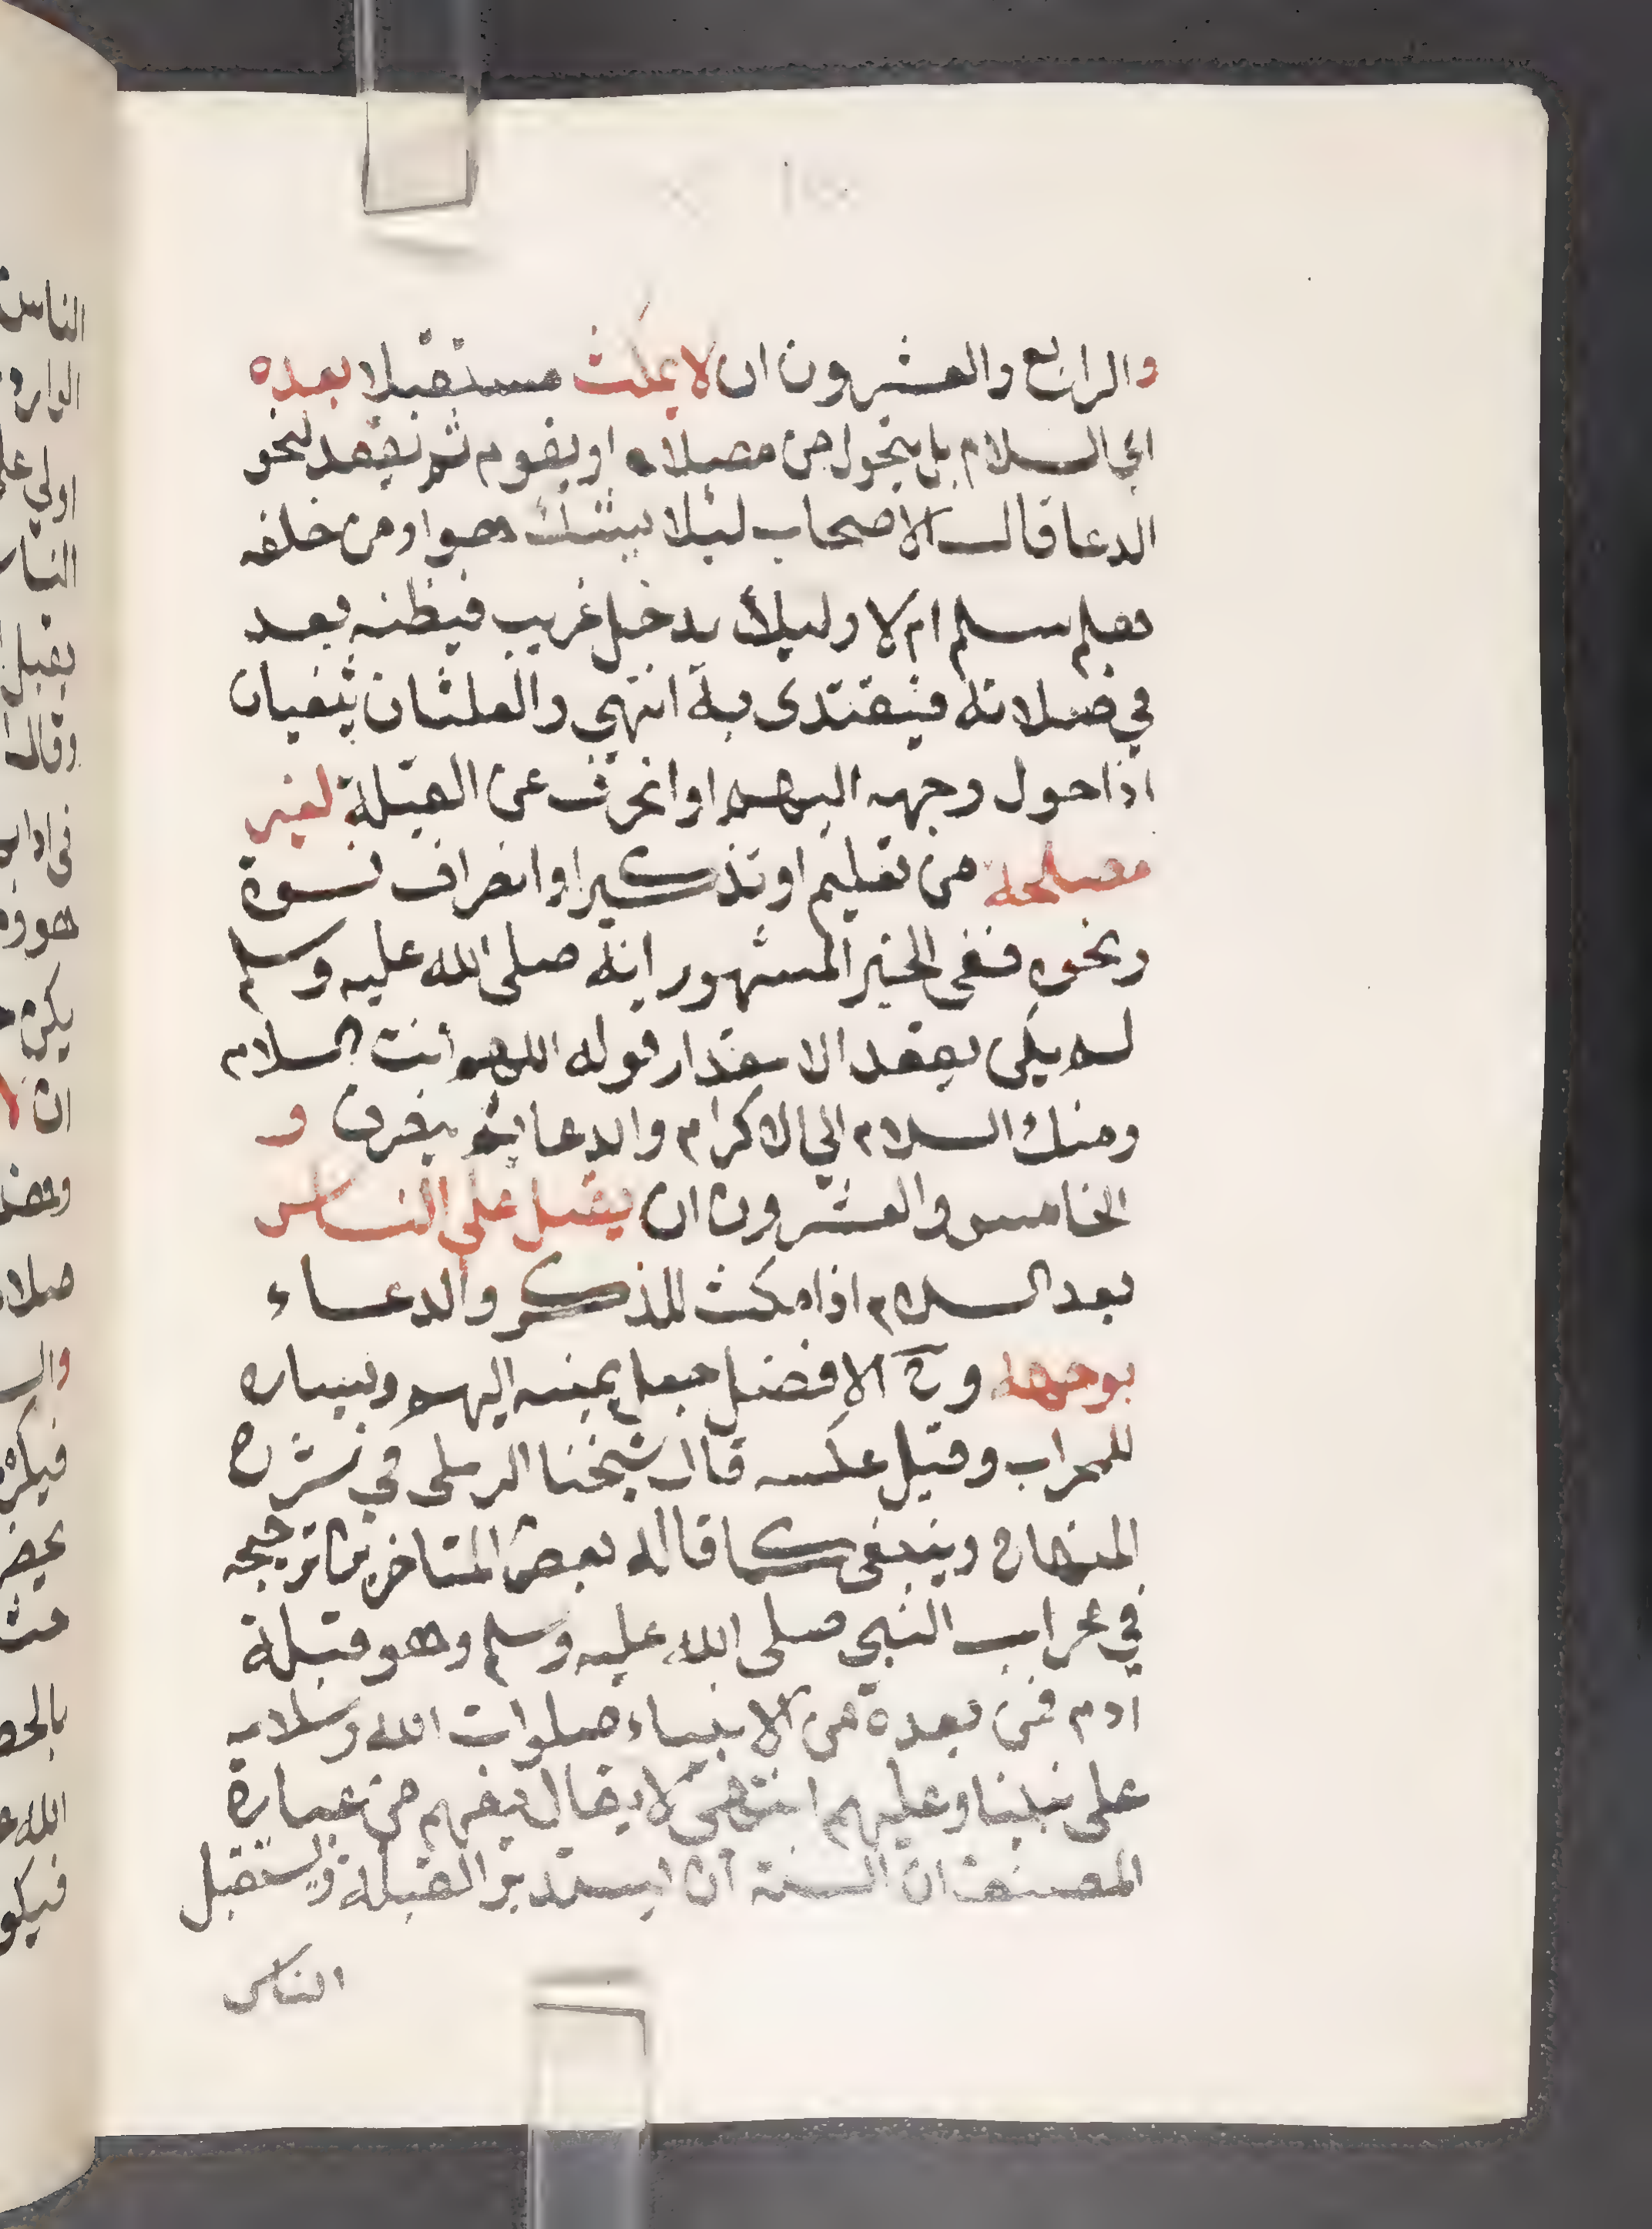 والرابع والعشرون ان لا يمكث مستقبلا بعده
اي السلام بل يتحول من مصلاه او يقوم ثم يقعد لنحو
الدعا قال الاصحاب ليلا يشك هو او من خلفه
هل سلم ام لا وليلا يدخل غريب فيظنه بعد
في صلاته فيقتدى به انتهى والعلتان ينفيان
اذا حول وجهه اليهم او انحرف عن القبلة لغير
مصلحة من تعليم او تذكير او انصراف نسوة
ونحوه ففى الخبر المشهور انه صلى الله عليه وسلم
لم يكن يقعد الا مقدار قوله اللهم انت السلام
ومنك السلام الي الاكرام والدعا ثم ينصرف و
الخامس والعشرون ان يقبل على الناس
بعد السلام اذا مكث للذكر والدعاء
بوجهه وح الافضل جعل يمينه اليهم ويساره
للمحراب وقيل عكسه قال شيخنا الرملى في شرح
المنهاج وينبغى كما قاله بعض المتاخرين ترجيحه
في محراب النبي صلى الله عليه وسلم وهو قبلة
ادم فمن بعده من الانبياء صلوات الله وسلامه
على نبينا وعليهم انتهى لا يقال يفهم من عبارة
المصنف ان السنة ان يستدبر القبلة ويستقبل
الناس
الناس
اولي
الناس
يقبل
وقال
يكره
ان لا